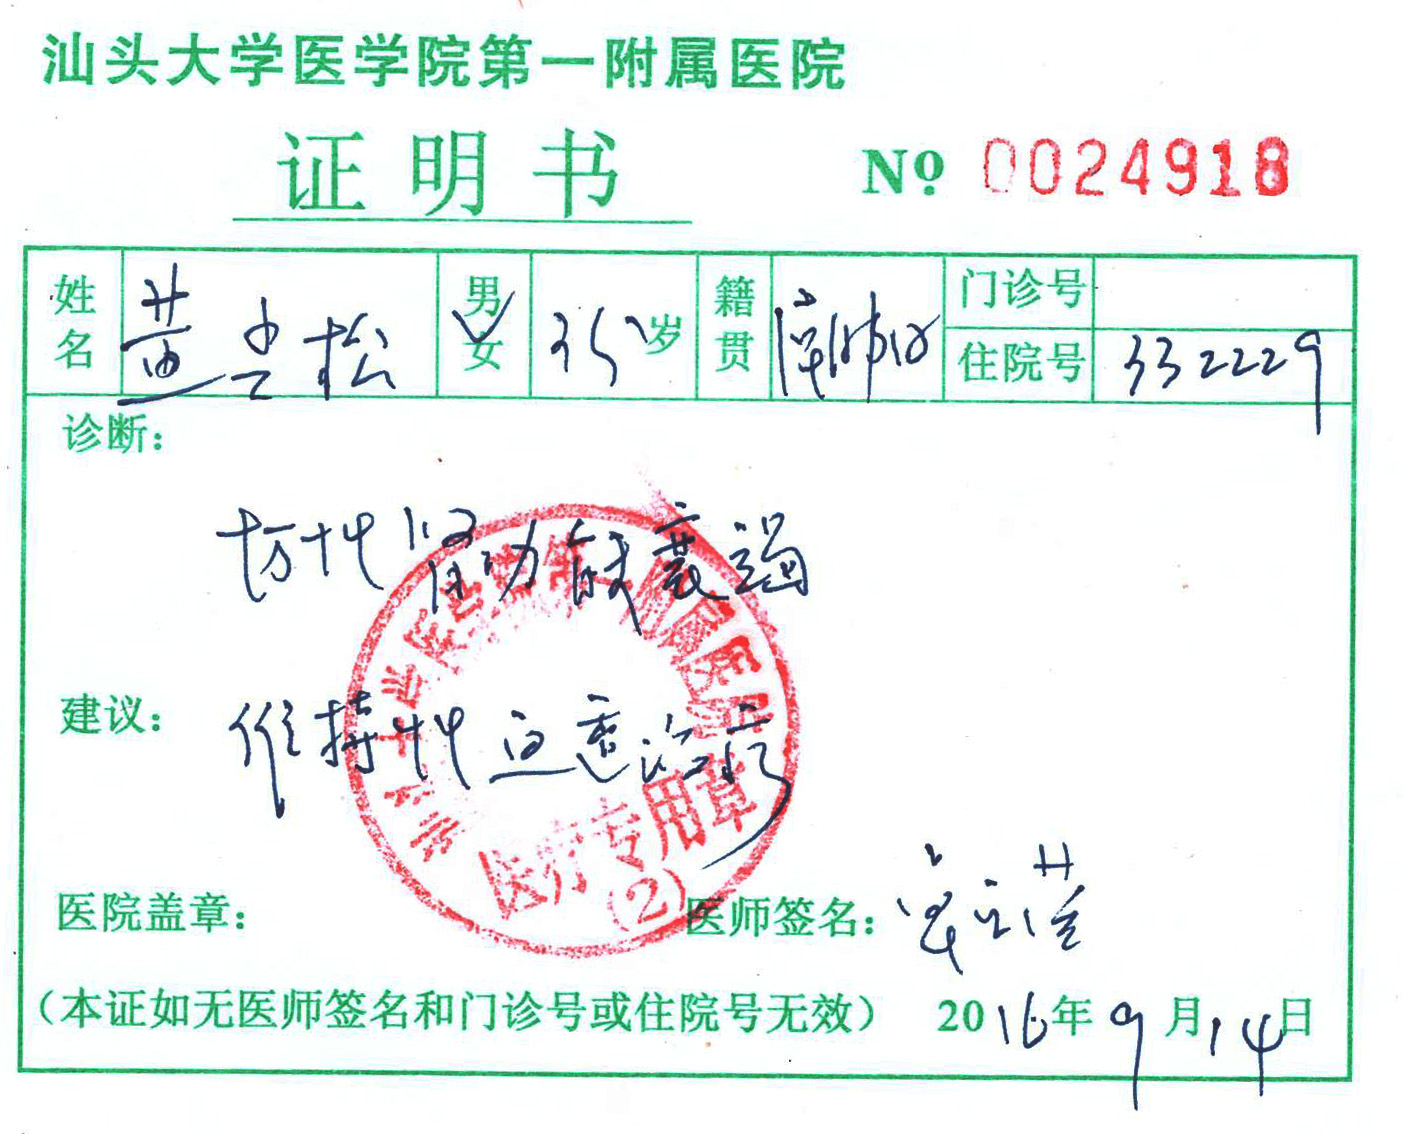 汕头大学医学院第一附属医院
证明书
No 0024918
姓名 黄 松 男 女 35岁 籍贯 门诊号
住院号 332229
诊断：
慢性肾功能衰竭
建议： 维持性血透治疗
医院盖章： 医师签名：
汕头大学医学院第一附属医院
医疗专用章
(2)
（本证如无医师签名和门诊号或住院号无效） 2016年9月14日